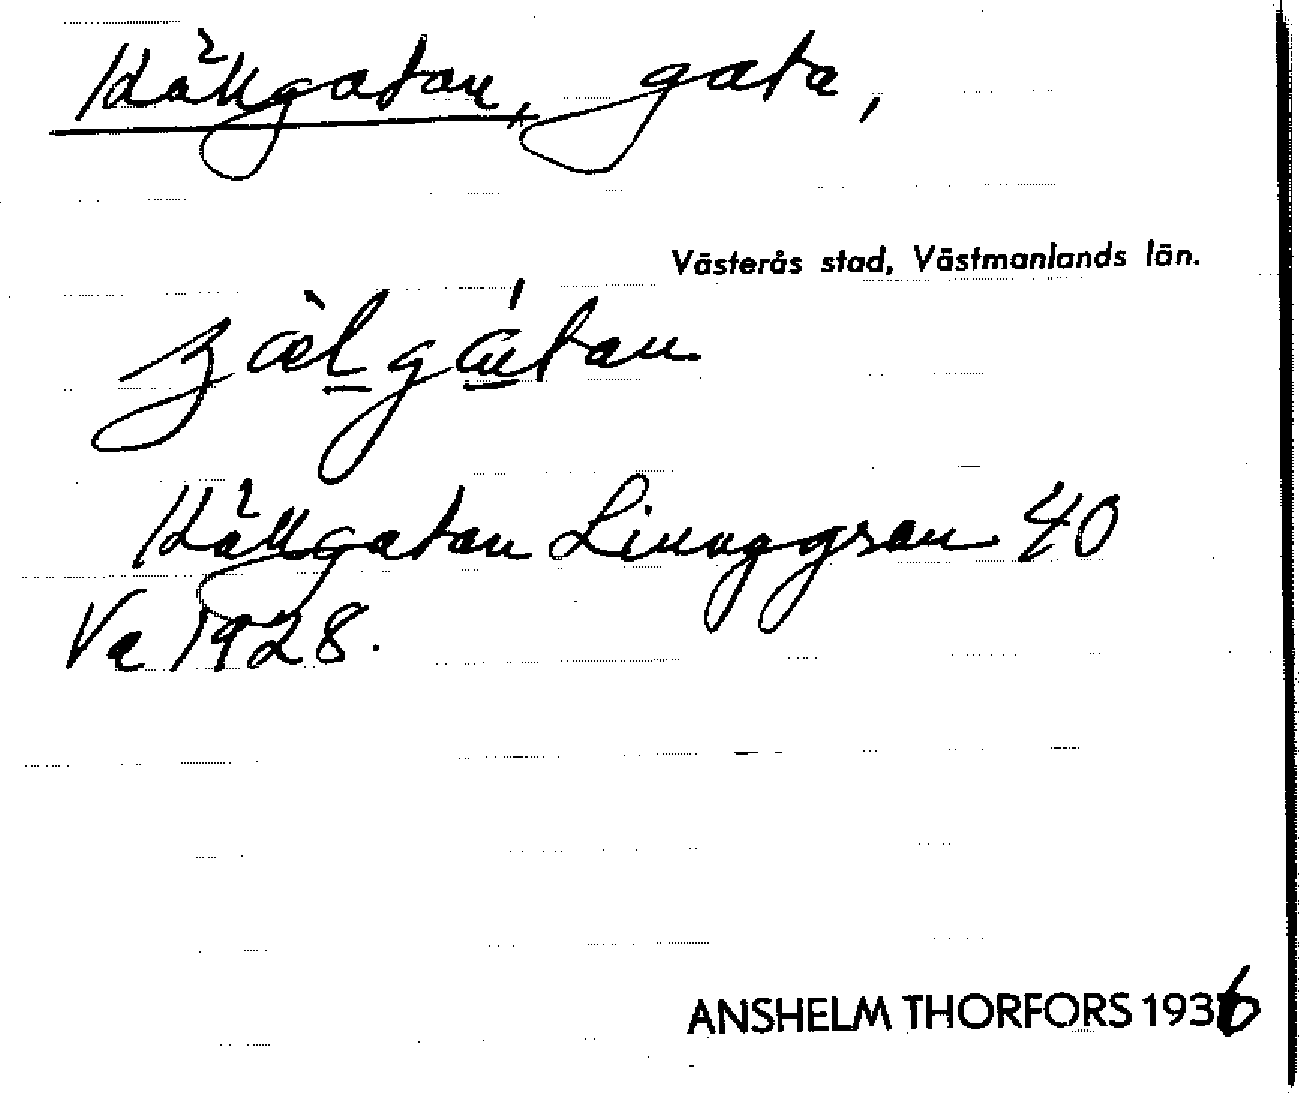 Källgatan, gata,
Västerås stad, Västmanlands län.
ʒæ̀lgátan
Källgatan Liunggren 40
Va 1928.
ANSHELM THORFORS 1936